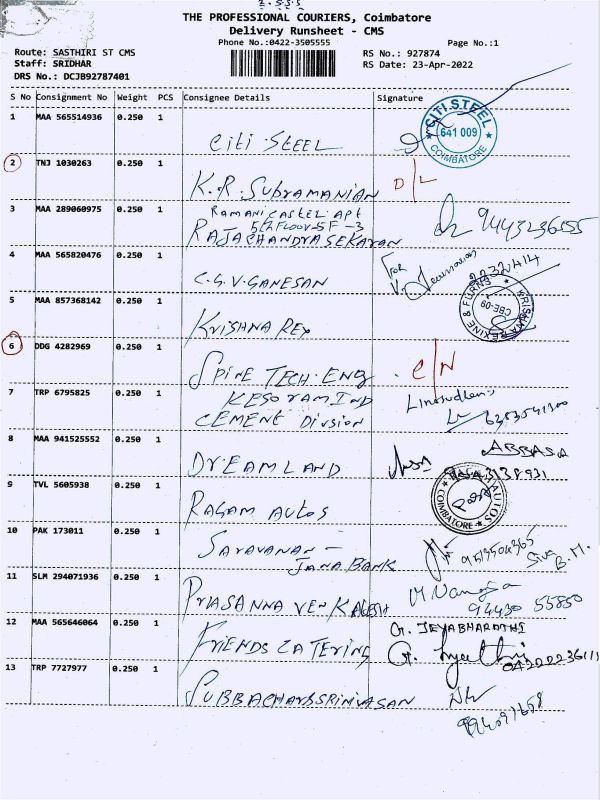 THE PROFESSIONAL COURIERS, Coimbatore
Delivery Runsheet - CMS
Phone No.:0422-3505555
Page No.:1
Route: SASTHIRI ST CMS
Staff: SRIDHAR
DRS No.: DCJB92787401
RS No.: 927874
RS Date: 23-Apr-2022
S No Consignment No Weight PCS Consignee Details Signature
1 MAA 565514936 0.250 1
Citi STEEL
CITI STEEL
641 009
COIMBATORE
2 TNJ 1030263 0.250 1
K.R. Subramanian D/L
3 MAA 289060975 0.250 1
RAMANI CASTEL APt
5th Floor 5F-3
RAJACHANDRASEKARAN
9443236555
4 MAA 565820476 0.250 1
C.G.V. GANESAN
For
5 MAA 857368142 0.250 1
KRISHNA REX
KRISHNA REXINE & FURNS
CBE-09
6 DDG 4282969 0.250 1
SPINE TECH. ENG C/N
7 TRP 6795825 0.250 1
KESORAM IND
CEMENT Division
8 MAA 941525552 0.250 1
DREAMLAND
ABBASA
9 TVL 5605938 0.250 1
RAGAM AUTOS
RAGAM AUTOS
COIMBATORE
10 PAK 173011 0.250 1
SARAVANAN -
JANA BANK
Siva
B.M.
11 SLM 294071936 0.250 1
PRASANNA VENKATESH
94430 55850
12 MAA 565646064 0.250 1
FRIENDS CATERING
G. JEYABHARATHI
13 TRP 7727977 0.250 1